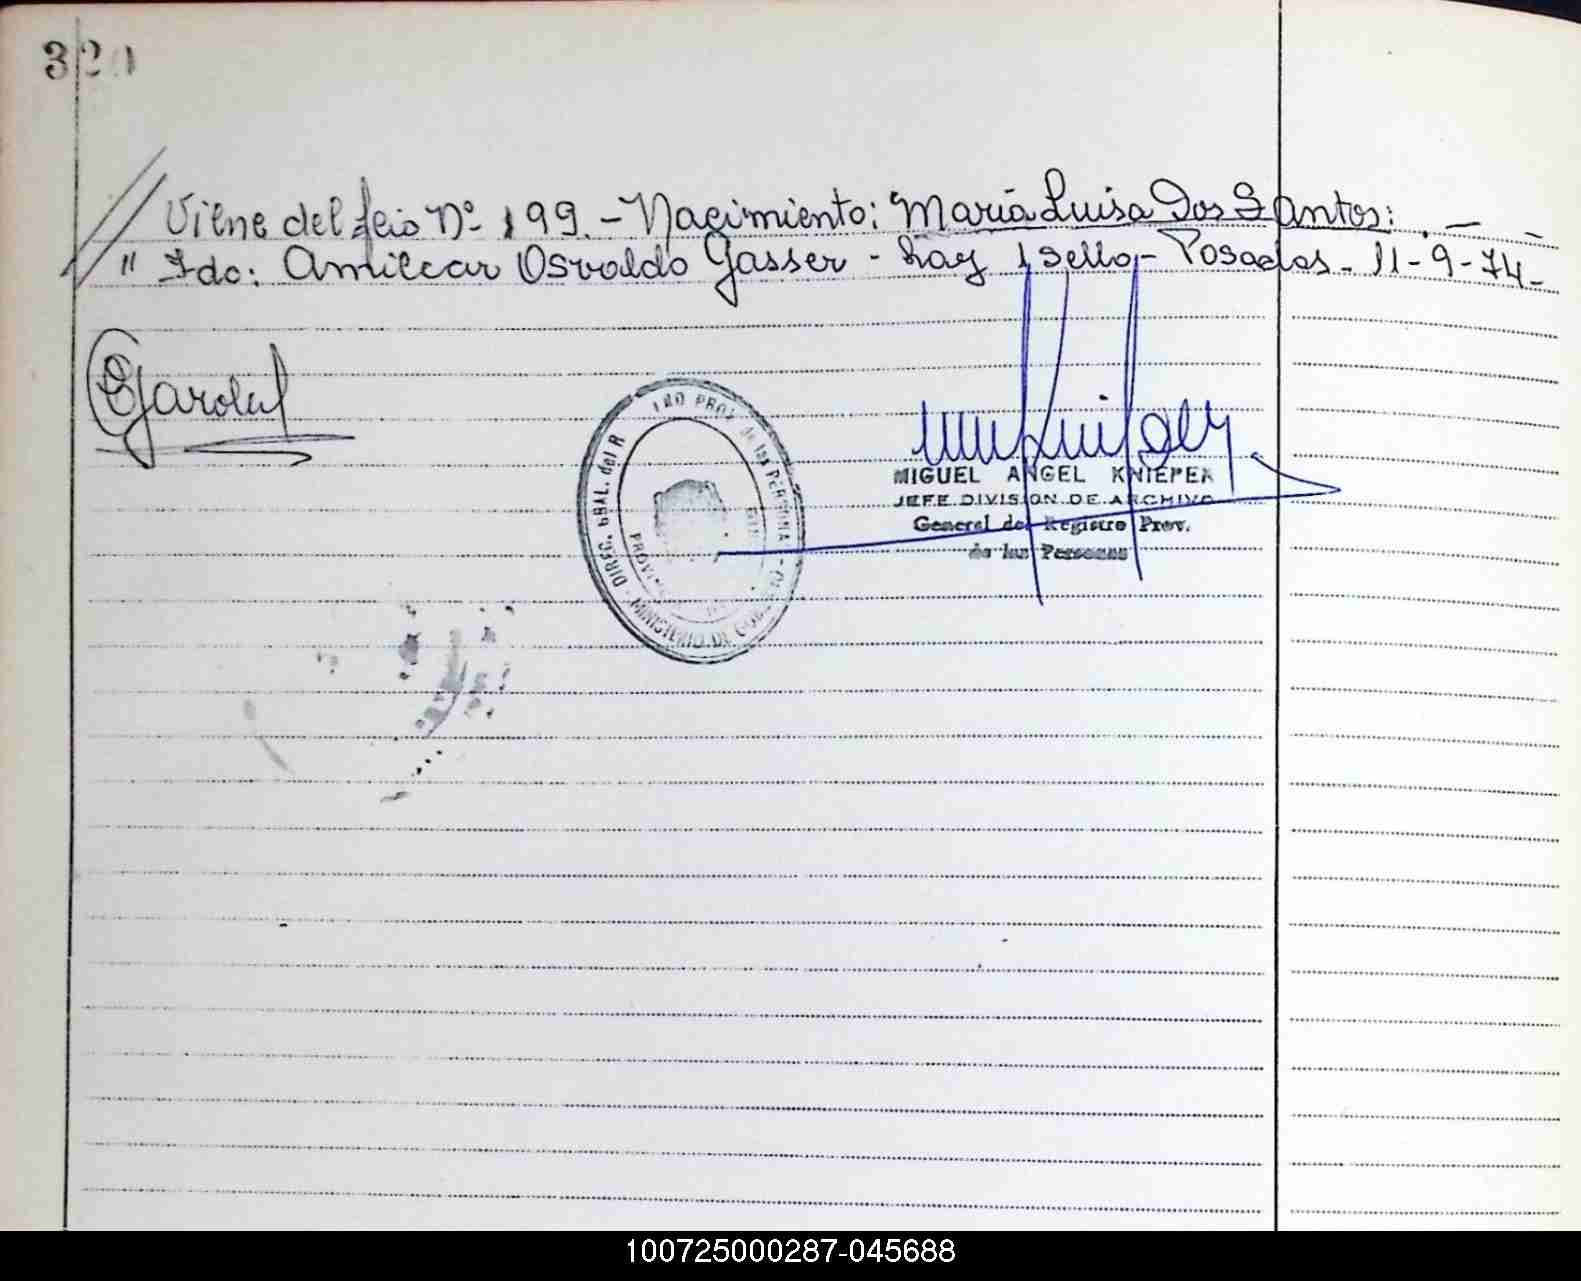 320
// Viene del folio Nº 199.- Nacimiento: María Luisa Dos Santos: . — -
" Fdo: Amilcar Osvaldo Gasser - Hay 1 sello - Posadas - 11-9-74 -
DIREC. GRAL. del R PROV. de las PERSONAS
MINISTERIO DE GOBIERNO
MIGUEL ANGEL KNIEPER
JEFE DIVISION DE ARCHIVO
General del Registro Prov.
de las Personas
100725000287-045688